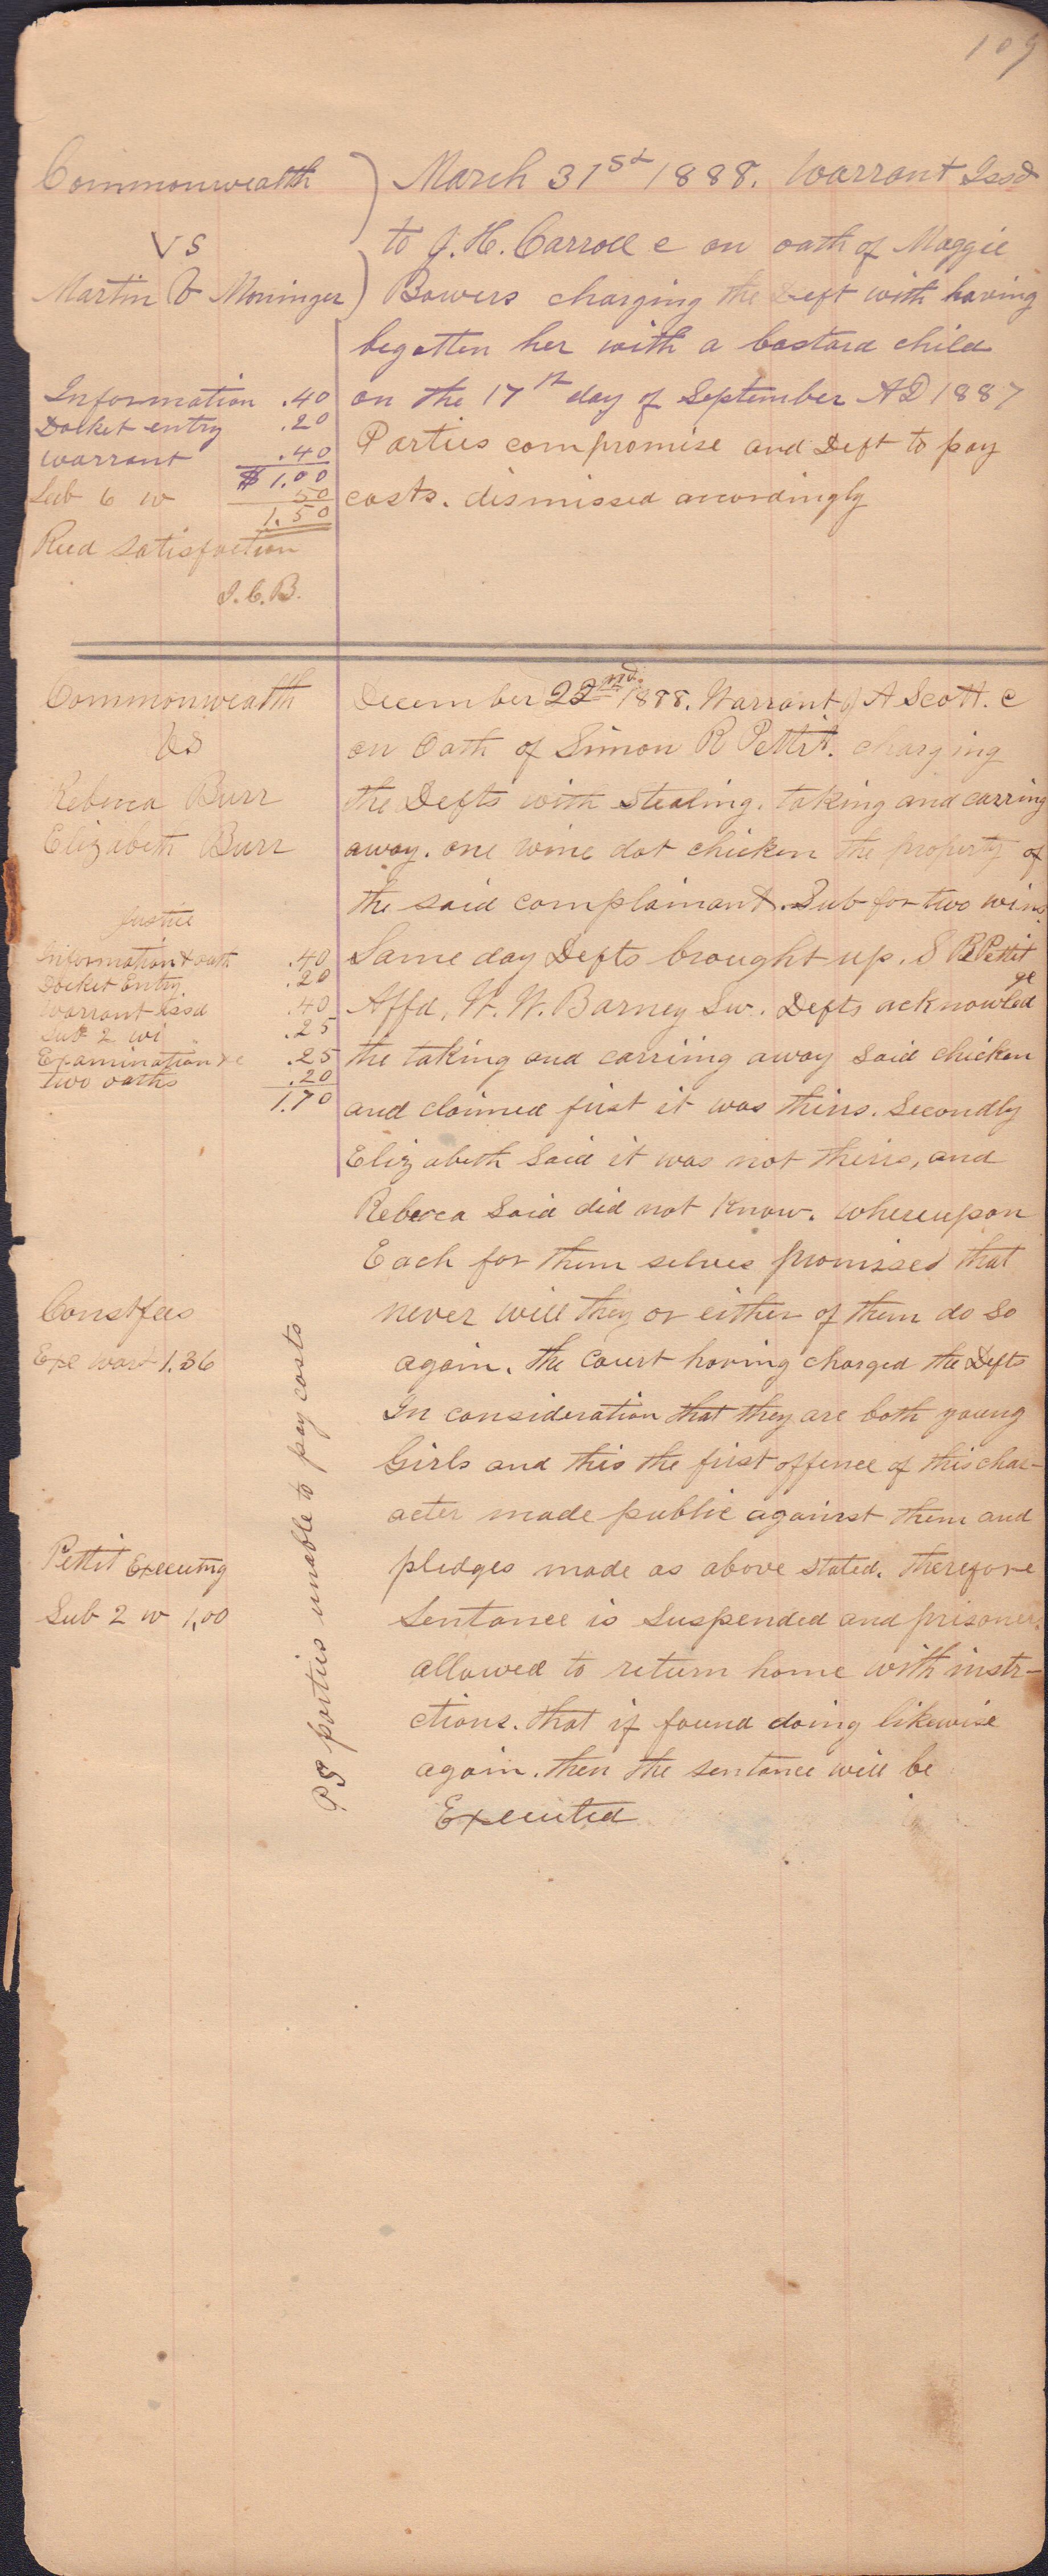 109
Commonwealth
VS
Martin V Moninger
March 31st 1888. Warrant Issd
to J. H. Carroll c on oath of Maggie
Bowers charging the Deft with having
begotten her with a bastard child
on the 17th day of September AD 1887
Parties compromise and Deft to pay
costs. dismissed accordingly
Information .40
Dolket entry .20
warrant .40
$1.00
Sub 6 w 50
1.50
Recd satisfaction
J. C. B.
Commonwealth
VS
Rebecca Burr
Elizabeth Burr
December 22nd 1888. Warrant J A Scott. c
on Oath of Simon R Pettit. charging
the Defts with Stealing. taking and carring
away. one wine dot chicken the property of
the said complainant. Sub for two wins.
Same day Defts brought up. S R Pettit
Affd, W. W. Barney Sw. Defts acknowledged
the taking and carriing away Said chicken
and claimed first it was thirs. Secondly
Elizabeth Said it was not theirs, and
Rebecca Said did not Know. Whereupon
Each for them selves promised that
never will they or either of them do So
again. the Court having charged the Defts
In consideration that they are both young
Girls and this the first offence of this char-
acter made public against them and
pledges made as above stated. therefore
Sentance is Suspended and prisoners
allowed to return home with instr-
ctions. that if found doing likewise
again. then the sentance will be
Executed
Justice
Information & oath .40
Docket Entry. .20
Warrant issd .40
Sub 2 wi .25
Examination &c .25
two oaths .20
1.70
Const fees
Exe wart 1.36
Pettit Executing
Sub 2 w 1,00
PS parties unable to pay costs